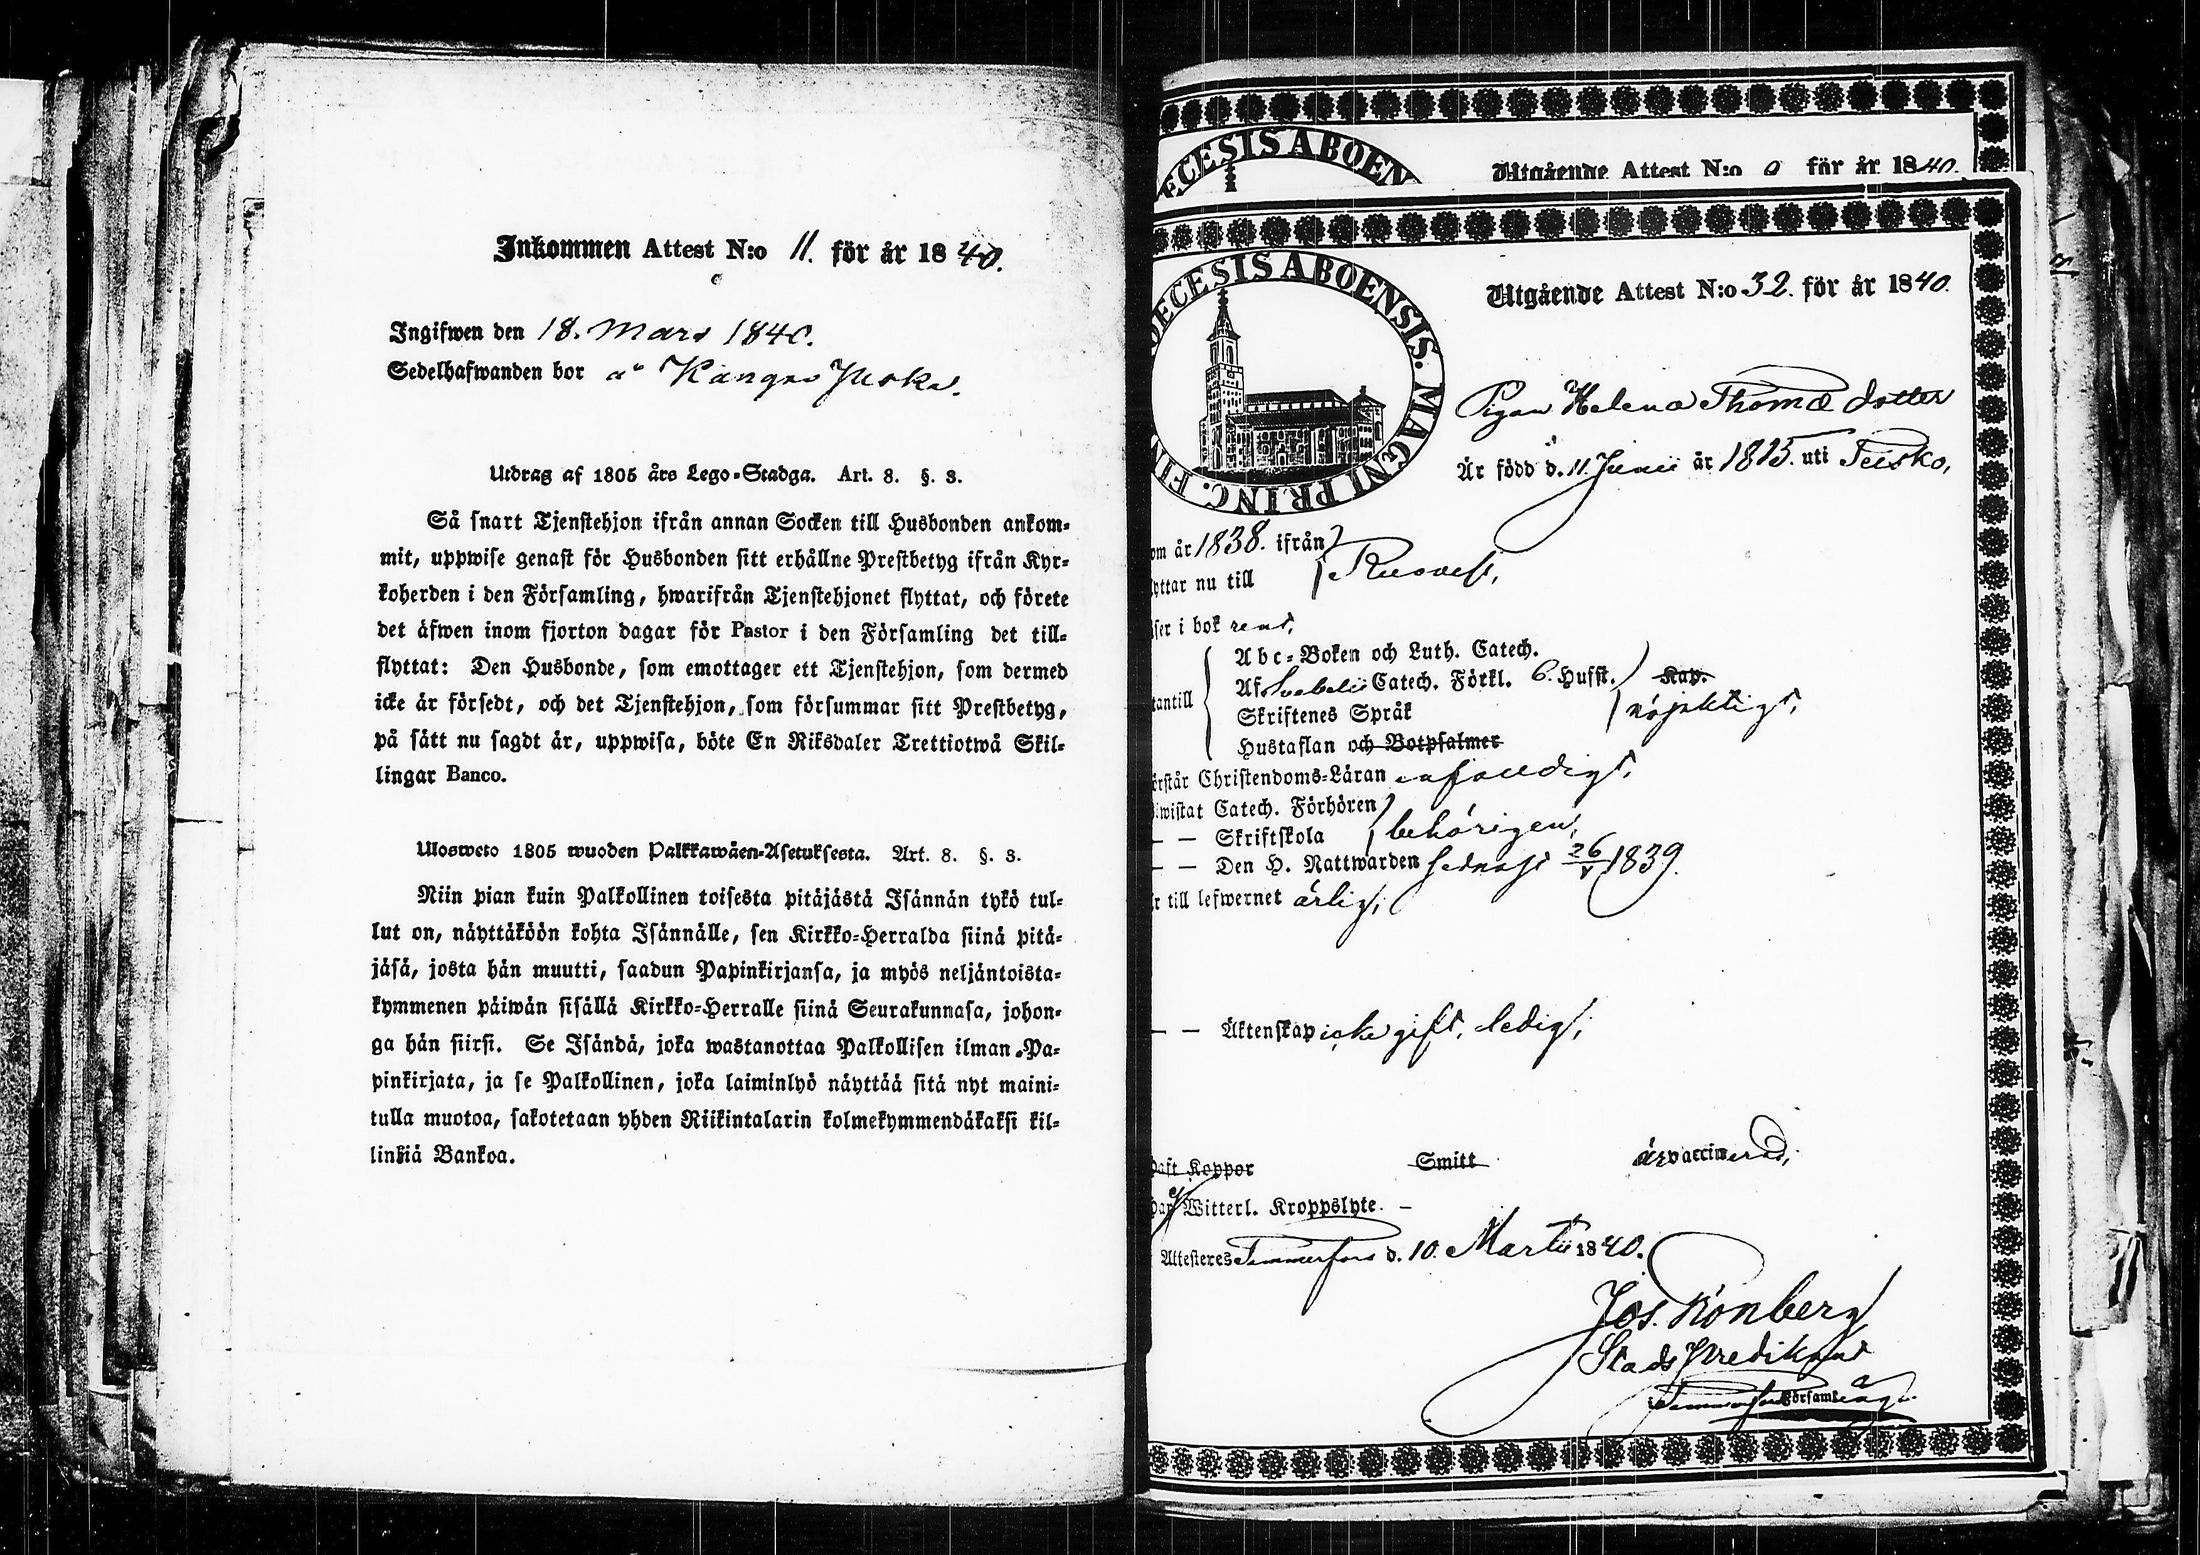 Inkommen Attest N:o 11. för år 1840.
Ingifwen den 18. Mars 1840.
Sedelhafwanden bor å Kangas Juska.
Utdrag af 1805 års Lego-Stadga. Art. 8. §. 3.
Så snart Tjenstehjon ifrån annan Socken till Husbonden ankom-
mit, uppwise genast för Husbonden sitt erhållne Prestbetyg ifrån Kyr-
koherden i den Församling, hwarifrån Tjenstehjonet flyttat, och förete
det äfwen inom fjorton dagar för Pastor i den Församling det till-
flyttat: Den Husbonde, som emottager ett Tjenstehjon, som dermed
icke är försedt, och det Tjenstehjon, som försummar sitt Prestbetyg,
på sätt nu sagdt är, uppwisa, böte En Riksdaler Trettiotwå Skil-
lingar Banco.
Ulosweto 1805 wuoden Palkkawäen-Asetuksesta. Art. 8. §. 3.
Niin pian kuin Palkollinen toisesta pitäjästä Isännän tykö tul-
lut on, näyttäköön kohta Isännälle, sen Kirkko-Herralda siinä pitä-
jäsä, josta hän muutti, saadun Papinkirjansa, ja myös neljäntoista-
kymmenen päiwän sisällä Kirkko-Herralle siinä Seurakunnasa, johon-
ga hän siirsi. Se Isändä, joka wastanottaa Palkollisen ilman Pa-
pinkirjata, ja se Palkollinen, joka laiminlyö näyttää sitä nyt maini-
tulla muotoa, sakotetaan yhden Riikintalarin kolmekymmendäkaksi kil-
linkiä Bankoa.
ECESIS ABOEN
Utgående Attest N:o för år 1840.
OECESIS ABOENSIS. MAGNI PRINC. FIN
Utgående Attest N:o 32. för år 1840.
Pigan Helena Thomæ dotter
Är född d. 11 Junii år 1815. uti
om år 1838. ifrån
yttar nu till
äser i bok rent,
Abc-Boken och Luth. Catech.
Af Svebelii Catech. Förkl. 6. Hufst. Kap.
tantill
Skriftenes Språk nöjaktigt,
Hustaflan och Botpsalmer
örstår Christendoms-Läran enfaldigt,
wistat Catech. Förhören
— — Skriftskola behörigen,
— — Den H. Nattwarden sednast 26/ 1839.
r till lefwernet ärlig,
— — Äktenskap icke gift, ledig,
haft Koppor Smitt är vaccinerad,
Witterl. Kroppslyte. —
Attesteres Tammerfors d. 10. Martii 1840.
Jos. Rönberg
Stads Predikant
Tammerfors Församling.